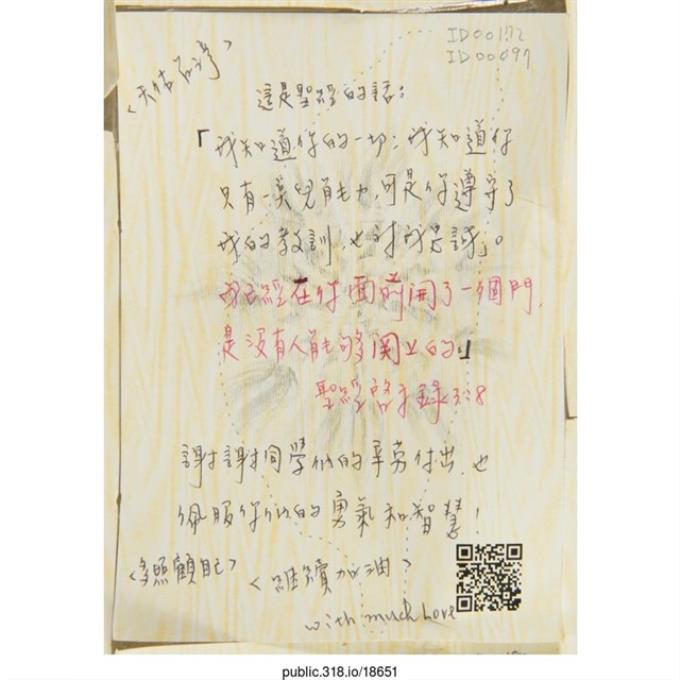 ID00172
ID00097
<天佑台灣>
這是聖經的話:
「我知道你的一切;我知道你
只有一點兒能力,可是你遵守了
我的教訓,也對我忠誠」。
我已經在你面前開了一個門,
是沒有人能够関上的」
聖經啓示錄3:8
謝謝同學們的辛勞付出,也
佩服你們的勇氣和智慧!
<多照顧自己>
<繼續加油>
with much Love
public.318.io/18651